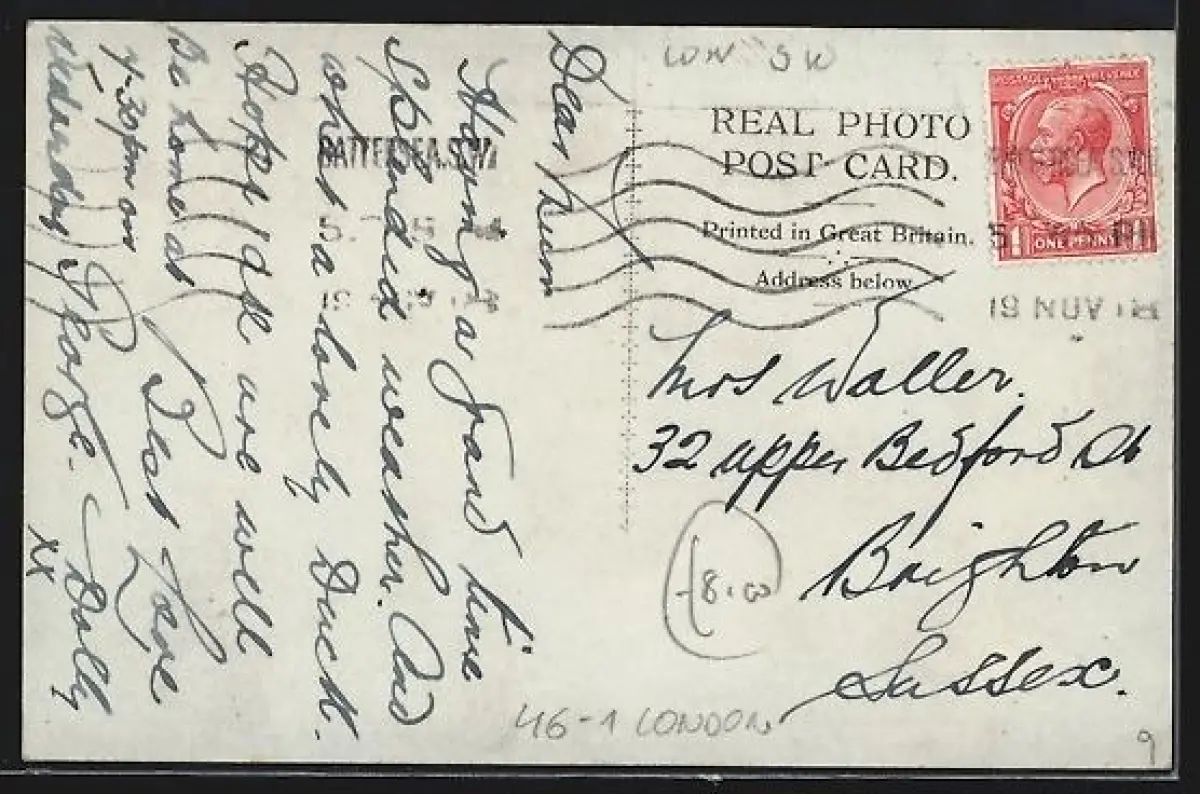 LON SW
REAL PHOTO
POST CARD.
Printed in Great Britain.
Address below.
POSTAGE REVENUE
ONE PENNY
BATTERSEA.S.W.
19 NOV
Mrs Waller.
32 upper Bedford St
Brighton
Sussex.
8.00
46-1 LONDON
9
Dear Mum
Having a grand time
Splendid weather. And
what a lovely Duck.
Hope you are well
Be home at
7-30pm on
Wednesday
Best Love
George. Dolly
xx